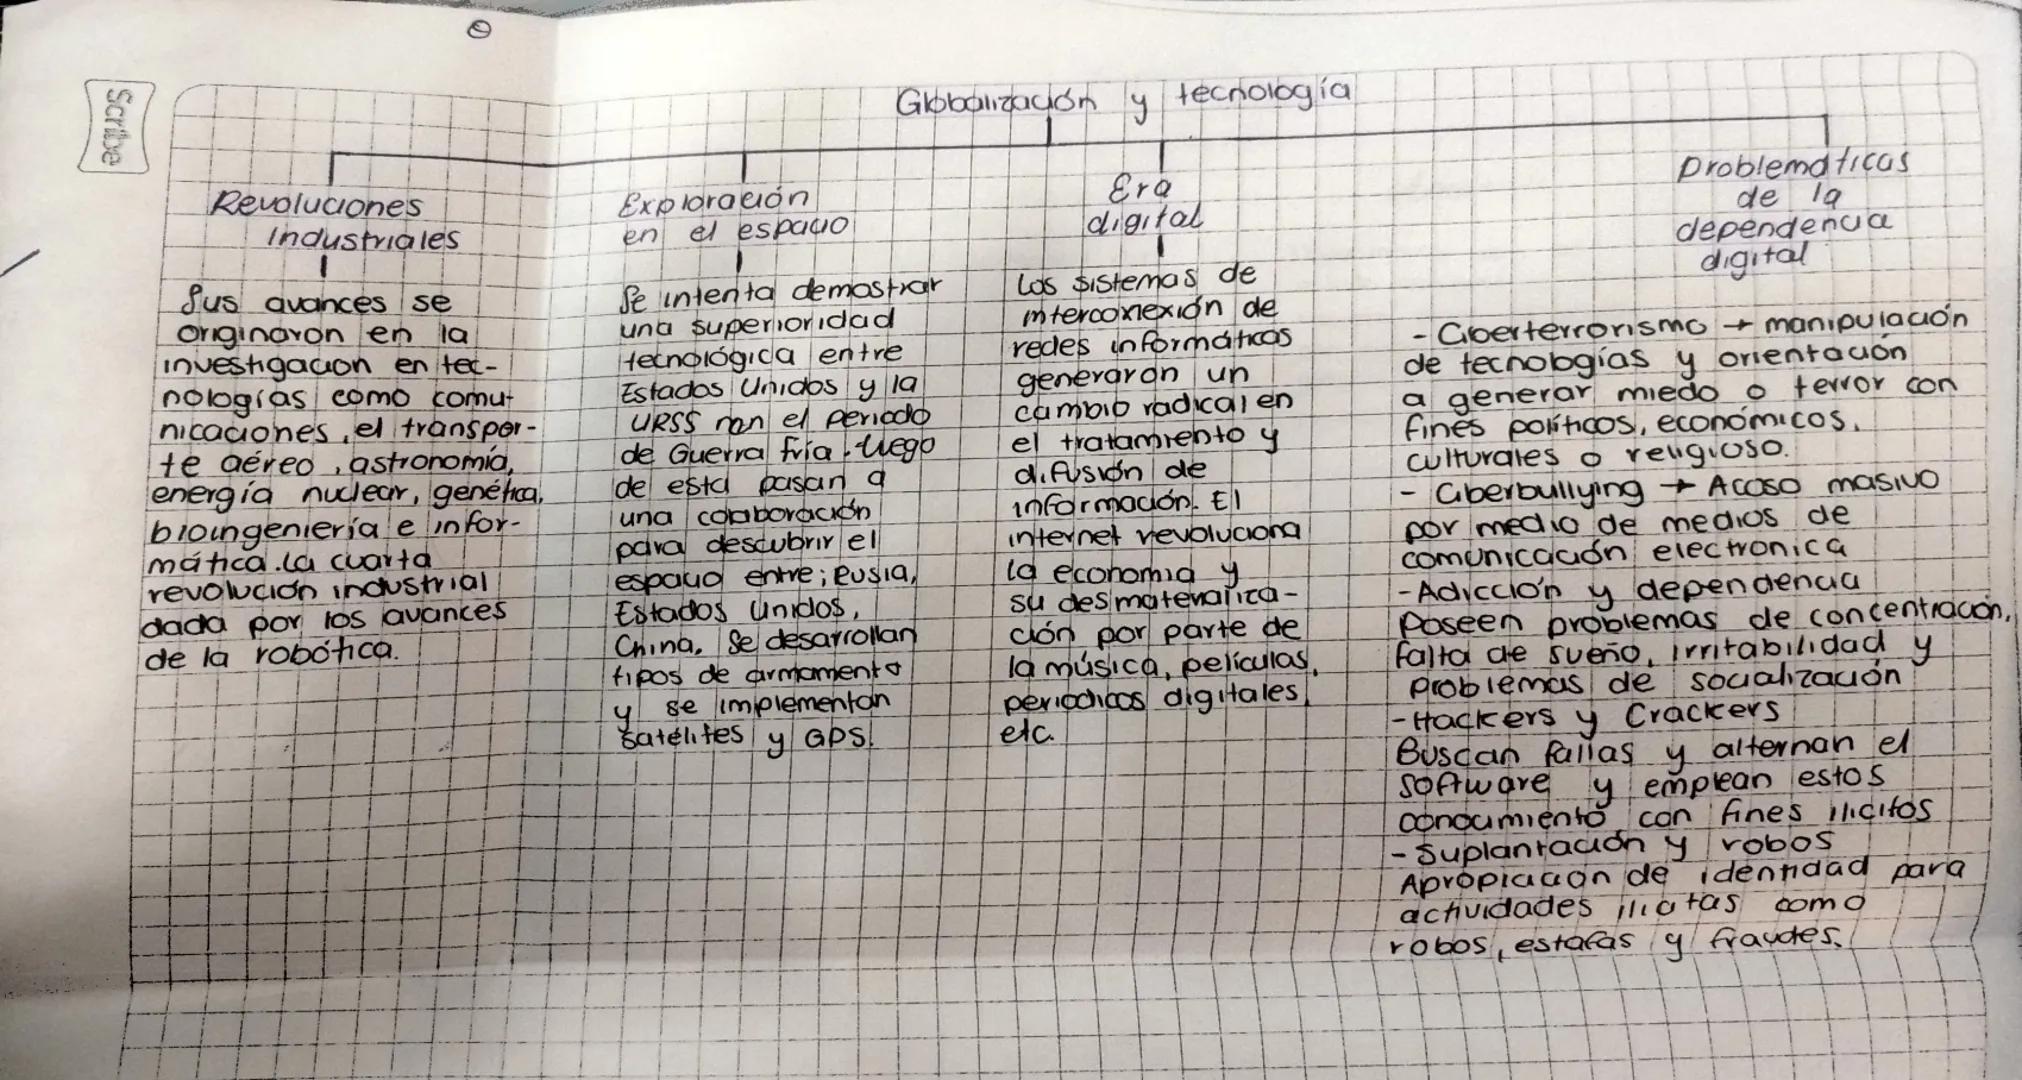 Scribe
Globalización y tecnología
Revoluciones
Industriales
Sus avances se
originaron en la
investigacion en tec-
nologías como comu-
nicaciones, el transpor-
te aéreo, astronomía,
energía nuclear, genética,
bioingeniería e infor-
mática. La cuarta
revolución industrial
dada por los avances
de la robótica.
Exploración
en el espacio
Se intenta demostrar
una superioridad
tecnológica entre
Estados Unidos y la
URSS en el periodo
de Guerra fría. Luego
de esta pasan a
una colaboración
para descubrir el
espacio entre; Rusia,
Estados Unidos,
China. Se desarrollan
tipos de armamento
y se implementan
satélites y GPS.
Era
digital
Los sistemas de
interconexión de
redes informáticas
generaron un
cambio radical en
el tratamiento y
difusión de
información. El
internet revoluciona
la economia y
su desmaterializa-
ción por parte de
la música, películas,
periodicos digitales,
etc.
Problematicas
de la
dependencia
digital
- Ciberterrorismo → manipulación
de tecnologías y orientación
a generar miedo o terror con
fines políticos, económicos,
culturales o religioso.
- Ciberbullying → Acoso masivo
por medio de medios de
comunicación electronica
- Adicción y dependencia
Poseen problemas de concentración,
falta de sueño, irritabilidad y
problemas de socialización
- Hackers y Crackers
Buscan fallas y alternan el
software y emplean estos
conocimiento con fines ilicitos
- Suplantación y robos
Apropiacion de identidad para
actividades ilicitas como
robos, estafas y fraudes.